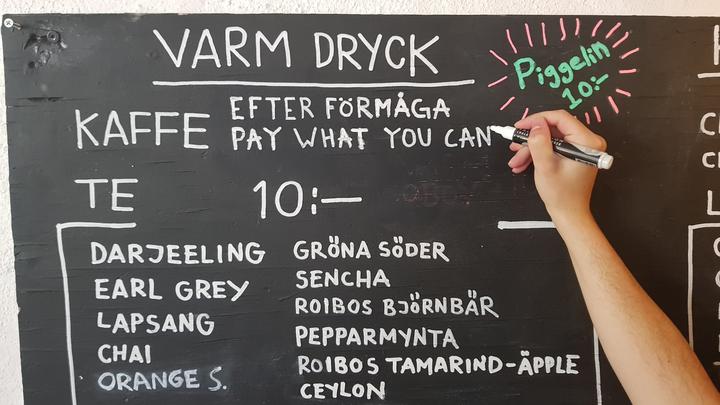 VARM DRYCK
Piggelin
10:-
KAFFE
EFTER FÖRMÅGA
PAY WHAT YOU CAN
TE 10:-
DARJEELING
EARL GREY
LAPSANG
CHAI
ORANGE S.
GRÖNA SÖDER
SENCHA
ROIBOS BJÖRNBÄR
PEPPARMYNTA
ROIBOS TAMARIND-ÄPPLE
CEYLON